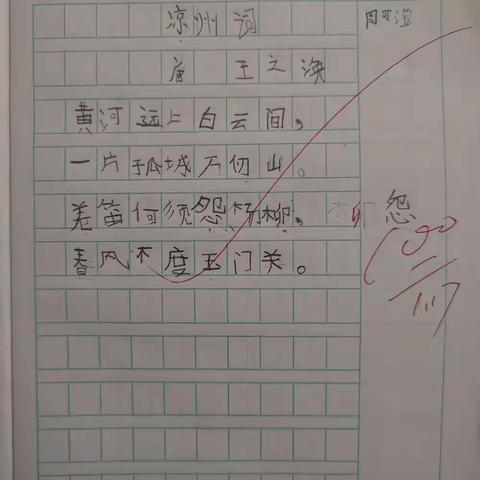 凉州词
周可滢
唐 王之涣
黄河远上白云间，
一片孤城万仞山。
羌笛何须怨杨柳，
怨
春风不度玉门关。
100
11.17